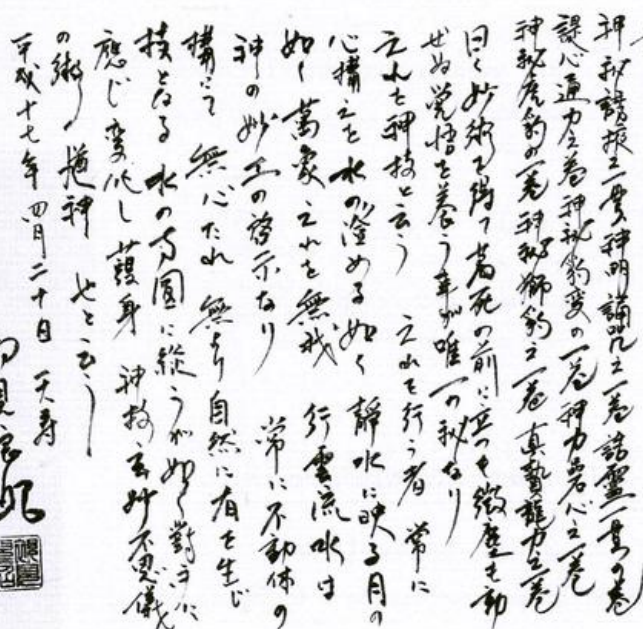 神秘諸振之一巻神明誦咒之一巻諸霊一集の巻
誤心通力之巻神秘豹変の一巻神力君心之一巻
神秘虎豹の一巻神秘獅豹之一巻真贄龍力之巻
曰く妙術を得て萬死の前に立つも微塵も動
ぜぬ覚悟を養う事が唯一の秘なり
之れを神技と云う 之れを行う者 常に
心構えを水の澄める如く 静水に映る月の
如く 萬象之れを無我 行雲流水は
神の妙工の啓示なり 常に不動体の
構にて 無心たれ 無より自然に有を生じ
技となる 水の方圓に従うが如く對手に
應じ変化し 護身 神技玄妙不思儀
の術 惟神 也と云う
平成十七年 四月二十日 天寿